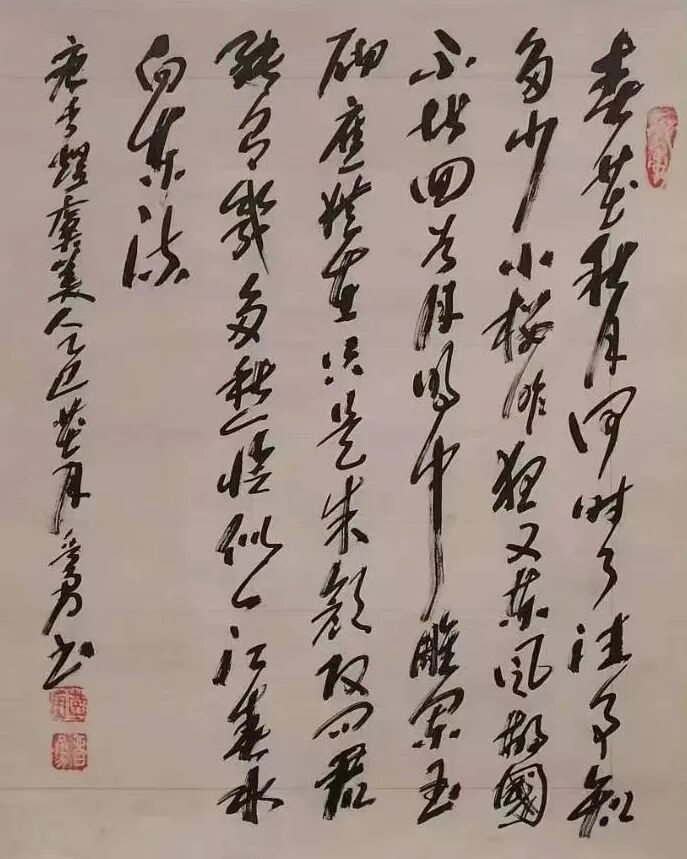 春花秋月何時了往事知
多少小樓昨夜又東風故國
不堪回首月明中雕闌玉
砌應猶在只是朱顏改問君
能有幾多愁恰似一江春水
向東流
唐李煜虞美人乙巳花月書